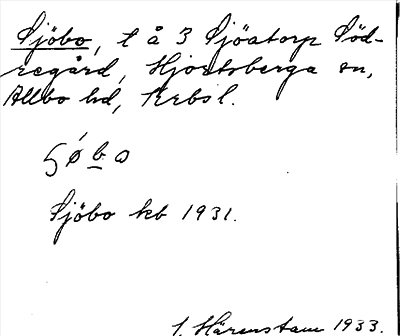 Sjöbo, t å 3 Sjöatorp Söd-
regård, Hjortsberga sn,
Allbo hd, Krbsl.
5 ǿ b o
Sjöbo kb 1931.
I. Härenstam 1933.